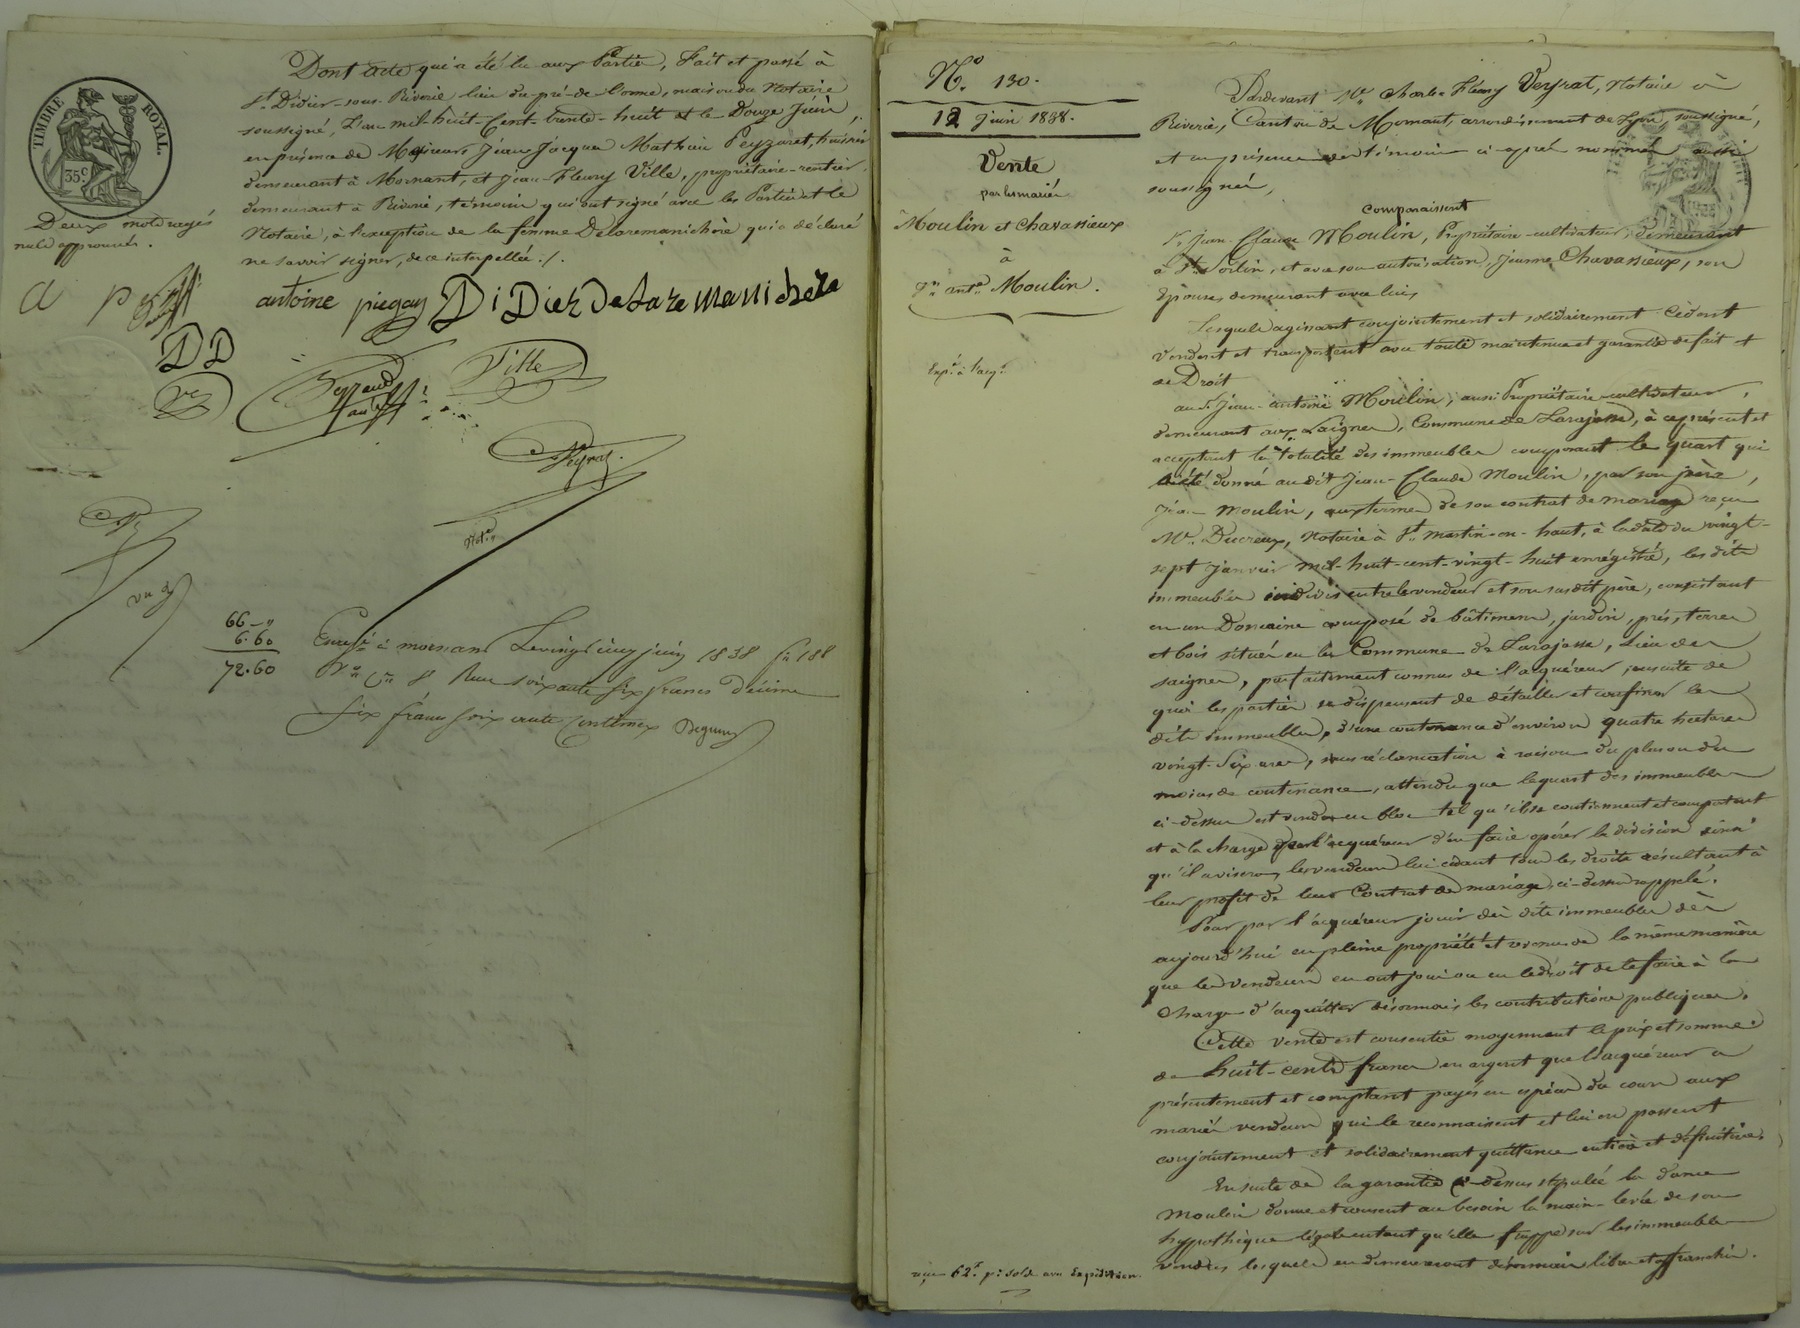 Dont acte qui a été lu aux Parties, Fait et passé à
St. Didier-sous-Riverie lieu du pré-de l'orme, maison du Notaire
soussigné, L'an mil-huit-Cent-trente-huit et le Douze Juin,
en présence de Messieurs Jean Jacques Mathieu Peyzaret, huissier
demeurant à Mornant, et Jean-Fleury Ville, propriétaire-rentier
demeurant à Riverie, témoins qui ont signé avec les Parties et le
Notaire, à l'exception de la femme Delaremanichère qui a déclaré
ne savoir signer, de ce interpellée ./.
TIMBRE ROYAL.
35c
Deux mots rayés
nuls approuvés.
a p
antoine piegay DiDier DeLaremanichere
DD
Ville
Veyrat.
Notre
66 - "
6. 60
72. 60
Enregé à mornant Le vingt cinq juin 1838 fo 188
Vo Ce 8 Reçu soixante six francs décime
six francs soixante centimes
No. 130.
12 Juin 1838.
Vente
par les mariés
Moulin et Chavassieux
à
Jn ante Moulin.
Expn à l'acqr
Pardevant Me Charles Fleury Veyrat, Notaire à
Riverie, Canton de Mornant, arrondissement de Lyon, soussigné,
et en présence des témoins ci-après nommés aussi
soussignés,
comparaissent
Sr. Jean-Claude Moulin, Propriétaire-cultivateur, demeurant
à , et avec son autorisation, Jeanne Chavassieux, son
Epouse, demeurant avec lui,
Lesquels agissant conjointement et solidairement Cèdent
Vendent et transportent avec toute maintenue et garantie de fait et
de Droit
au Sr. Jean-antoine Moulin, aussi Propriétaire-cultivateur,
demeurant aux Saignes, Commune de Larajasse, à ce présent et
acceptant la totalité des immeubles composant le quart qui
a été donné au dit Jean-Claude Moulin, par son père,
Jean Moulin, aux termes de son contrat de mariage reçu
Me. Ducreux, Notaire à St. Martin-en-haut, à la date du vingt-
sept Janvier mil-huit-cent-vingt-huit enrégistré, les dits
immeubles indivis entre le vendeur et son susdit père, consistant
en un Domaine composé de bâtimens, jardin, prés, terres
et bois situés en la Commune de Larajasse, Lieu des
saignes, parfaitement connus de l'acquéreur, ensuite de
quoi les parties se dispensent de détailler et confiner les
dits immeubles, d'une contenance d'environ quatre hectares
vingt-six ares, sans réclamation à raison du plus ou du
moins de contenance, attendu que le quart des immeubles
ci-dessus est vendu en bloc tel qu'ils se contiennent et comportent
et à la charge par l'acquéreur d'en faire opérer la division ainsi
qu'il avisera, les vendeurs lui cédant tous les droits résultant à
leur profit de leur Contrat de mariage, ci-dessus rappelé.
Pour par l'acquéreur jouir des dits immeubles dès
aujourd'hui en pleine propriété et revenus de la même manière
que les vendeurs en ont joui ou eu le droit de le faire à la
charge d'acquitter désormais les contributions publiques.
Cette vente est consentie moyennant le prix et somme
de huit-cents francs en argent que l'acquéreur a
présentement et comptant payés en espèces du cours aux
mariés vendeurs qui le reconnaissent et lui en passent
conjointement et solidairement quittance entière et définitive.
En suite de la garantie ci-dessus stipulée la dame
Moulin donne et consent au besoin la main-levée de son
hypothèque légale en tant qu'elle frappe sur les immeubles
vendus lesquels en demeureront désormais libres et affranchis.
reçu 62f. pr solde avec Expédition.